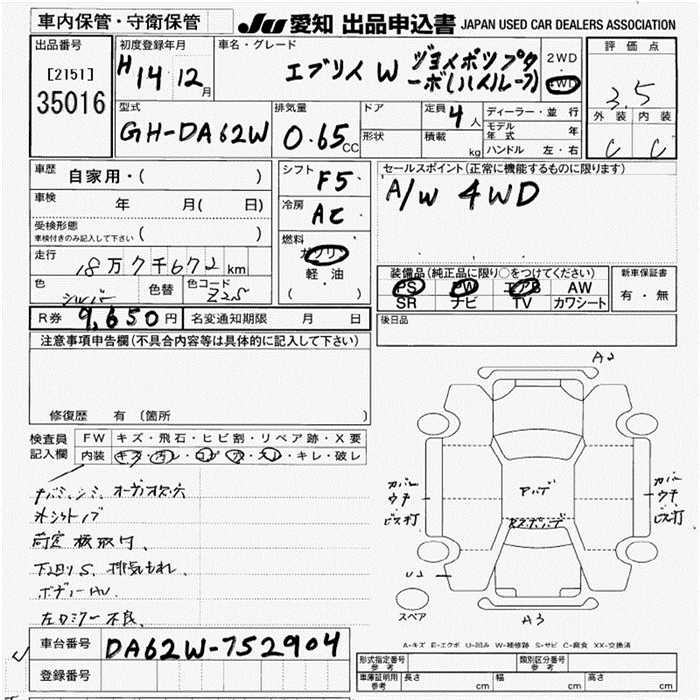 車内保管・守衛保管
JU 愛知 出品申込書 JAPAN USED CAR DEALERS ASSOCIATION
出品番号
[2151]
35016
初度登録年月
H14 12月
車名・グレード
エブリイ W
ジョイポップタ
ーボ(ハイルーフ)
2WD
4WD
評価点
3.5
外装 内装
C C
型式
GH-DA62W
排気量
0.65cc
ドア
形状
定員 4人
積載 kg
ディーラー・並行
モデル年式 年
ハンドル 左・右
車歴
自家用・( )
車検 年 月( 日)
受検形態
車検付きのみ記入して下さい ( )
走行
18万7千672km
色 シルバー
色替
色コード Z2S
シフト F5
冷房 AC
燃料
ガソリン
軽油
( )
セールスポイント(正常に機能するものに限ります)
A/W 4WD
装備品(純正品に限り○をつけてください)
PS PW エアB AW
SR ナビ TV カワシート
新車保証書
有・無
R券 9,650円
名変通知期限 月 日
後日品
注意事項申告欄(不具合内容等は具体的に記入して下さい)
修復歴 有 (箇所 )
検査員
記入欄
FW キズ・飛石・ヒビ割・リペア跡・X要
内装 キズ・汚レ・コゲ・穴・スレ・キレ・破レ
下回りS、排気もれ、
ボディーAU
左ドミラー不良、
A2
カバー
ウチ
ビス打
カバー
ウチ
ビス打
U2
A3
スペア
A-キズ E-エクボ U-凹み W-補修跡 S-サビ C-腐食 XX-交換済
車台番号 DA62W-752904
登録番号
形式指定番号
参考
類別区分番号
参考
車庫証明用
参考
長さ cm
幅 cm
高さ cm